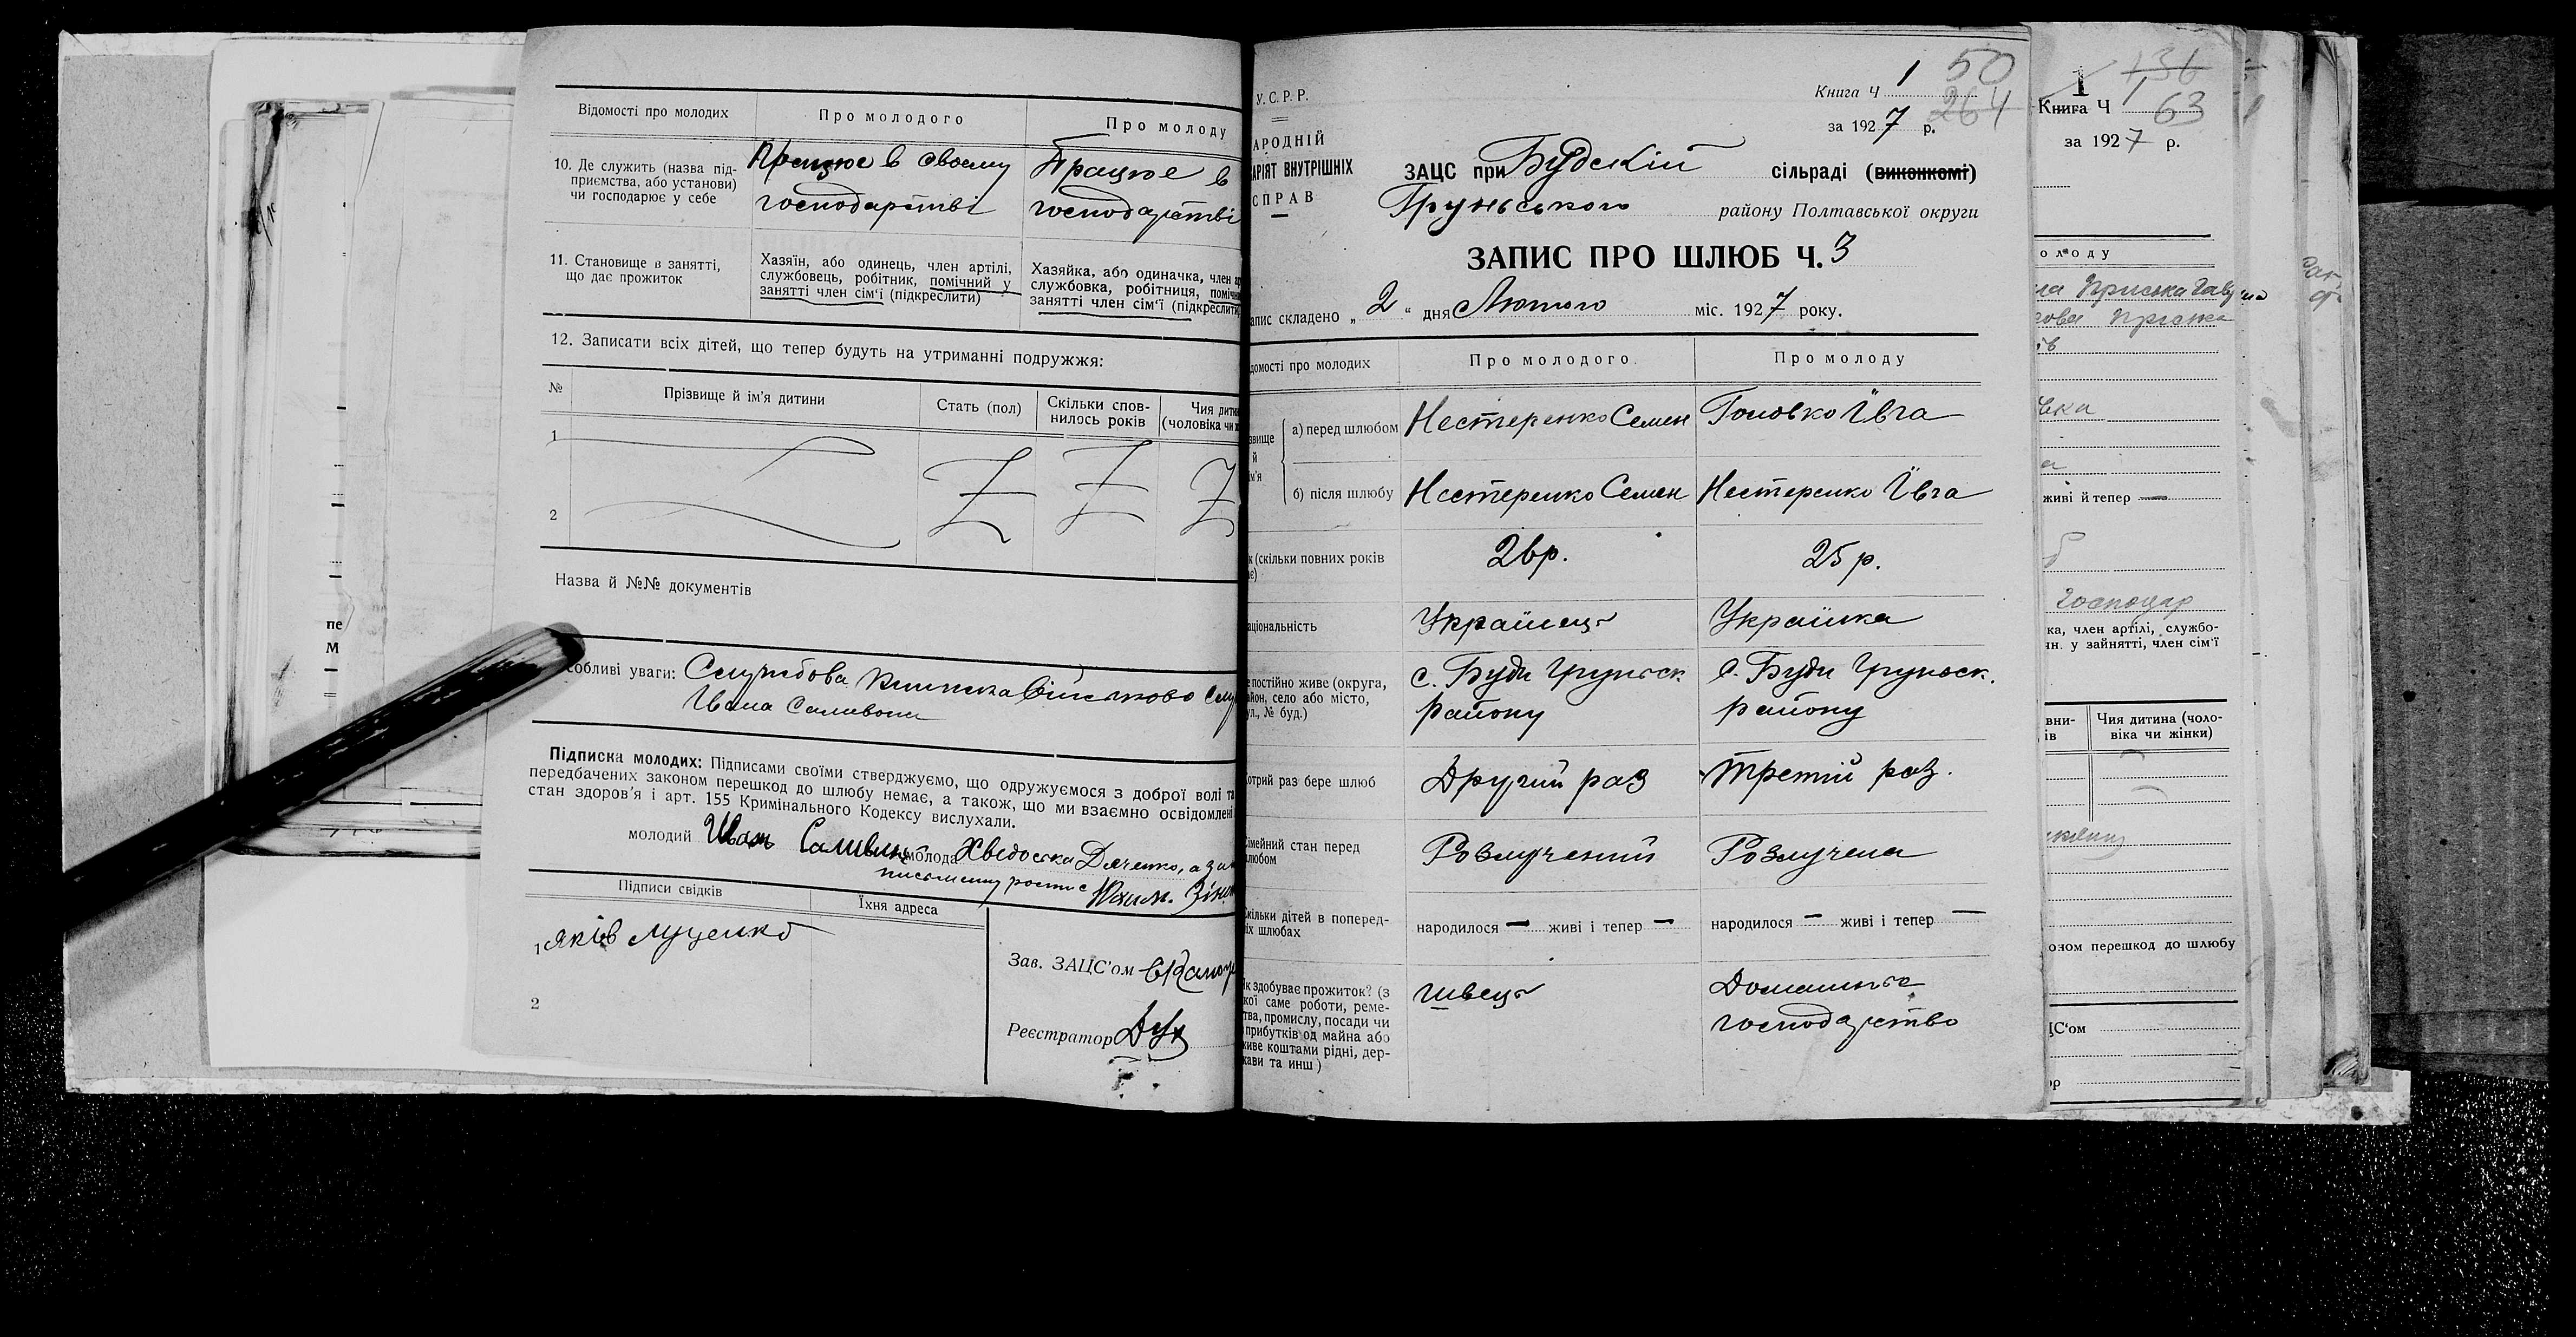 Відомості про молодих
Про молодого
Про молоду
10. Де служить (назва під-
приємства, або установи)
чи господарює у себе
Працює в своєму
господарстві
Працює в
господарстві
11. Становище в занятті,
що дає прожиток
Хазяїн, або одинець, член артілі,
службовець, робітник, помічний у
занятті член сім'ї (підкреслити)
Хазяйка, або одиначка, член
службовка, робітниця,
занятті член сім'ї (підкреслити
12. Записати всіх дітей, що тепер будуть на утриманні подружжя:
№
Прізвище й ім'я дитини
Стать (пол)
Скільки спов-
нилось років
Чия
(чоловіка
1
2
Назва й №№ документів
собливі уваги: Службова книжка
Івана Саливона
Підписка молодих: Підписами своїми стверджуємо, що одружуємося з доброї волі
передбачених законом перешкод до шлюбу немає, а також, що ми взаємно освідомлені
стан здоров'я і арт. 155 Кримінального Кодексу вислухали.
молодий Иван молода Хведоська Дяченко, а за
Підписи свідків
Їхня адреса
1 Яків Луценко
2
Зав. ЗАЦС'ом
Реєстратор
У.С.Р.Р.
АРОДНІЙ
АРІЯТ ВНУТРІШНІХ
СПРАВ
Книга Ч 1
50
264
за 1927 р.
ЗАЦС при Будскій сільраді (виконкомі)
Груньського району Полтавської округи
ЗАПИС ПРО ШЛЮБ Ч. 3
апис складено „ 2 “ дня Лютого міс. 1927 року.
домості про молодих
Про молодого
Про молоду
звище
й
ім'я
а) перед шлюбом
Нестеренко Семен
Головко Ївга
б) після шлюбу
Нестеренко Семен
Нестеренко Ївга
к (скільки повних років
ає)
26р.
25р.
аціональність
Українець
Українка
е постійно живе (округа,
айон, село або місто,
ул., № буд.)
с. Буди Груньск
району
с. Буди Груньск.
району
отрий раз бере шлюб
Другий раз
Третій раз.
імейний стан перед
любом
Розлучений
Розлучена
кільки дітей в поперед-
іх шлюбах
народилося — живі і тепер —
народилося — живі і тепер —
к здобуває прожиток? (з
кої саме роботи, реме-
тва, промислу, посади чи
прибутків од майна або
живе коштами рідні, дер-
жави та инш)
швець
Домашнє
господарство
1
136
Книга Ч 1
63
за 1927 р.
олоду
живі й тепер —
господар
ка, член артілі, службо-
ін. у зайнятті, член сім'ї
вни-
ів
Чия дитина (чоло-
віка чи жінки)
оном перешкод до шлюбу
ЦС'ом
ор
пе
М